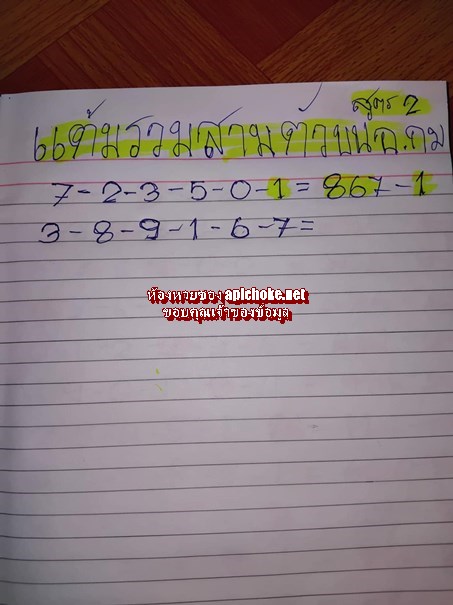 สูตร 2
แต้มรวมสามตัวบนฉ.กม
7-2-3-5-0-1=867-1
3-8-9-1-6-7=
ห้องหวยซอง apichoke.net
ขอบคุณเจ้าของข้อมูล